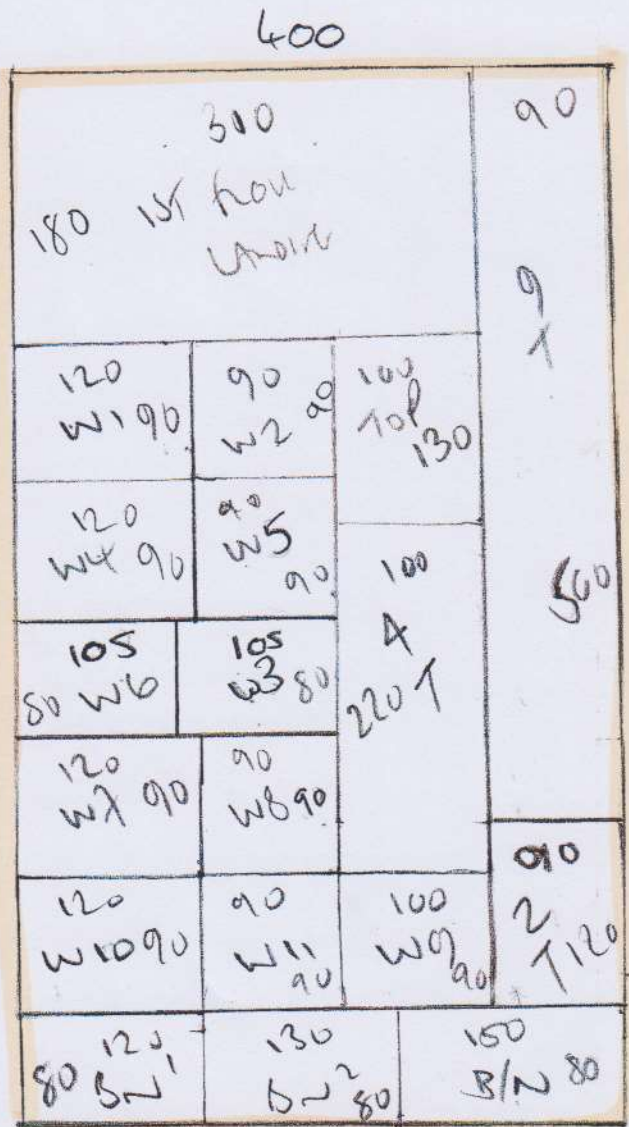 400
310
180 1ST
90
9
T
560
120
W1 90
90
W2 90
100
TOP
130
120
W4 90
90
W5
90
100
4
220 T
105
80 W6
105
W3 80
120
W7 90
90
W8 90
90
2
T 120
120
W10 90
90
W11
90
100
W9
90
120
80 BN1
130
BN2
80
150
B/N 80